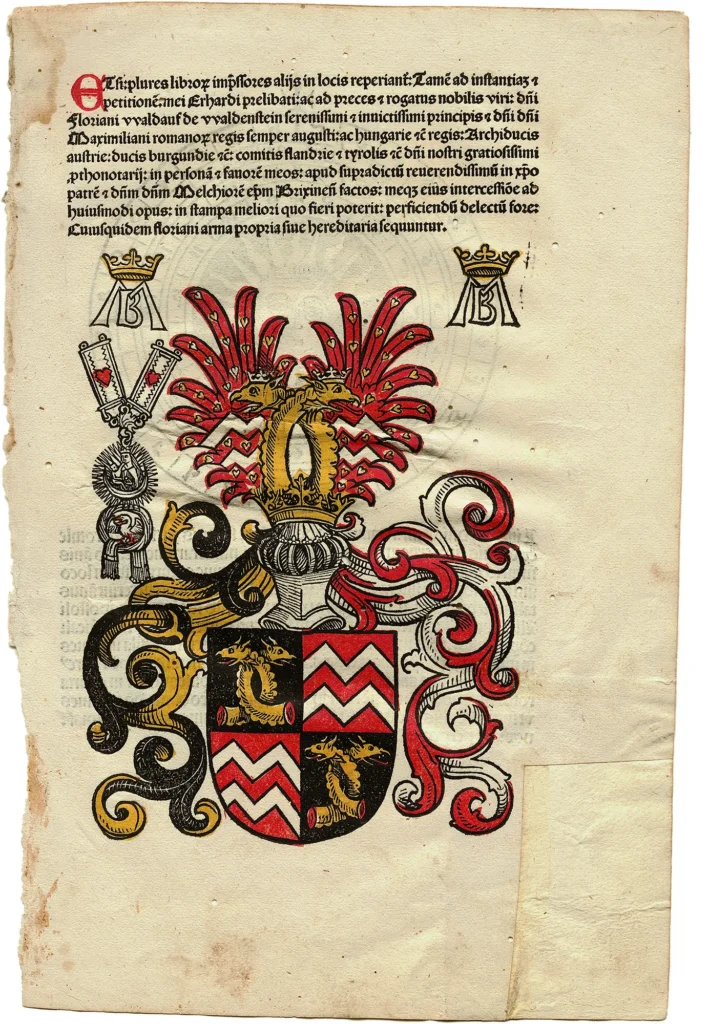 ETsi: plures libroꝝ imp̄ssores alijs in locis reperiant̄: Tamē ad instantiaꝫ ⁊
petitionē: mei Erhardi prelibati: ac ad preces ⁊ rogatus nobilis viri: dn̄i
Floriani vvaldauf de vvaldenstein serenissimi ⁊ inuictissimi principis ⁊ dn̄i dn̄i
Maximiliani romanoꝝ regis semper augusti: ac hungarie ⁊c̄ regis: Archiducis
austrie: ducis burgundie ⁊c̄: comitis flandrie ⁊ tyrolis ⁊c̄ dn̄i nostri gratiosissimi
ꝓthonotarij: in personā ⁊ fauorē meos: apud supradictū reuerendissimū in xp̄o
patrē ⁊ dn̄m dn̄m Melchiorē ep̄m Brixineñ factos: meqꝫ eius intercessiōe ad
huiusmodi opus: in stampa meliori quo fieri poterit: perficiendū delectū fore:
Cuiusquidem floriani arma propria siue hereditaria sequuntur.